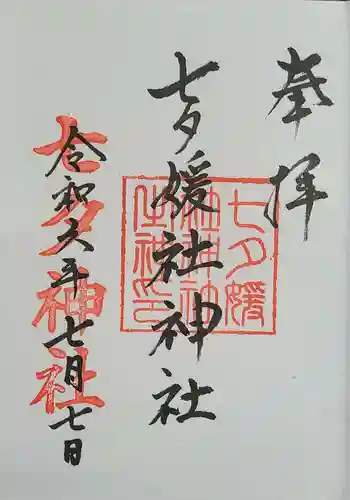 奉拝
七夕媛社神社
七夕媛
社神社
之神印
令和六年七月七日
七夕神社